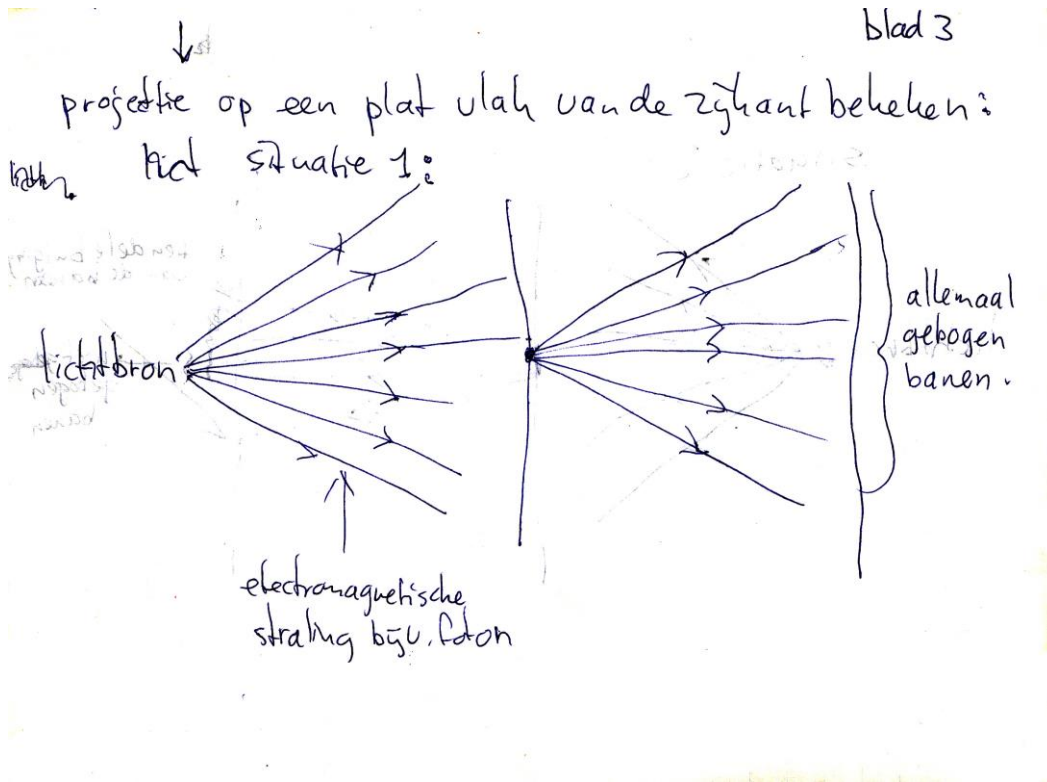 blad 3
projectie op een plat vlak van de zijkant bekeken:
situatie 1:
lichtbron
allemaal
gebogen
banen.
electromagnetische
straling bijv. foton